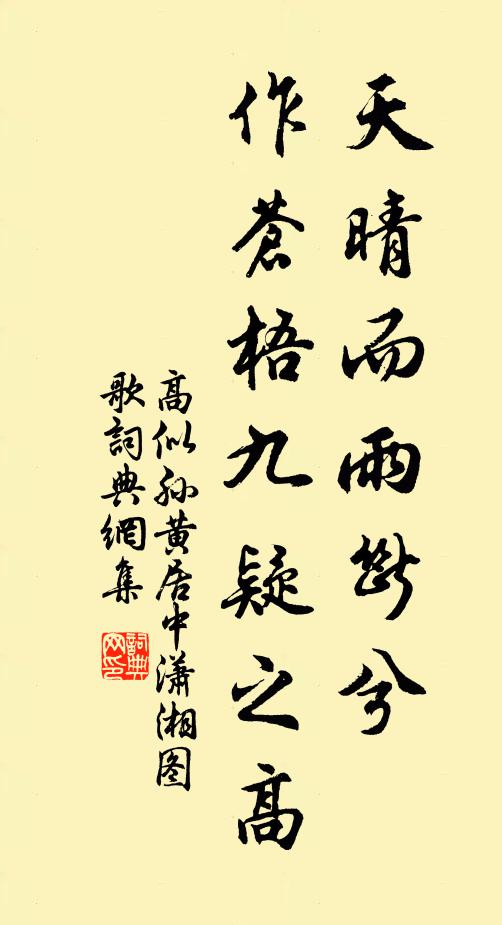 天晴而雨断兮
作蒼梧九疑之高
高似孙黄居中瀟湘图
歌詞典網集
詞典网印